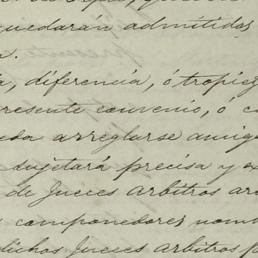 quedarán admitidas
a.
a, diferencia, ó tropiez
presente convenio, ó c
eda arreglarse amiga
sujetará precisa y ex
de Jueces arbitros ar
componedores nom
dichos Jueces arbitros p